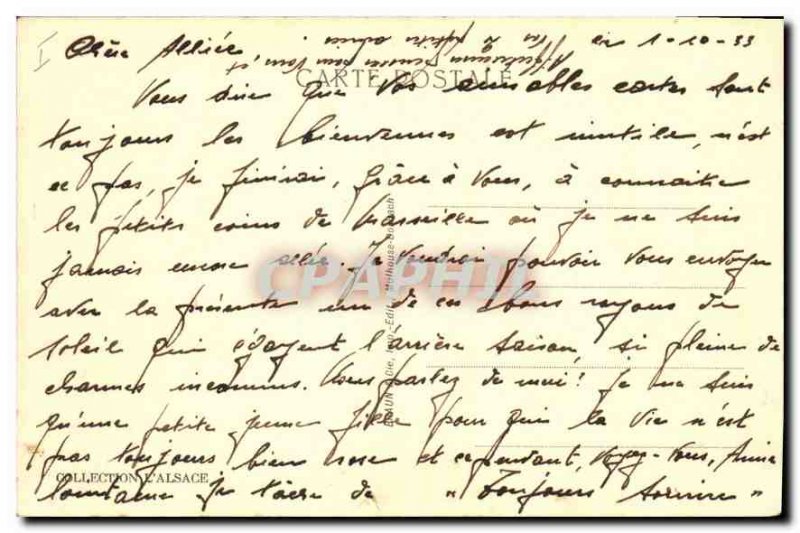 Chère Alliée
ce 1-10-33
CARTE POSTALE
Vous dire que vos aimables cartes sont
toujours les bienvenues est inutile, n'est
ce pas, je finirai, grâce à vous, à connaître
les petits coins de Marseille où je ne suis
jamais encore allée. Je voudrai pouvoir vous envoyer
avec la présente un de ces bons rayons de
soleil qui égayent l'arrière saison, si pleine de
charmes inconnus. Vous parlez de moi! Je ne suis
qu'une petite jeune fille pour qui la vie n'est
pas toujours bien rose et cependant, voyez-vous, Amie
lointaine je tâche de "Toujours sourire"
COLLECTION L'ALSACE
BRAUN & Cie, Impr.-Edit., Mulhouse-Dornach
CPAPHIL
pensées pour vous, et
petite amie